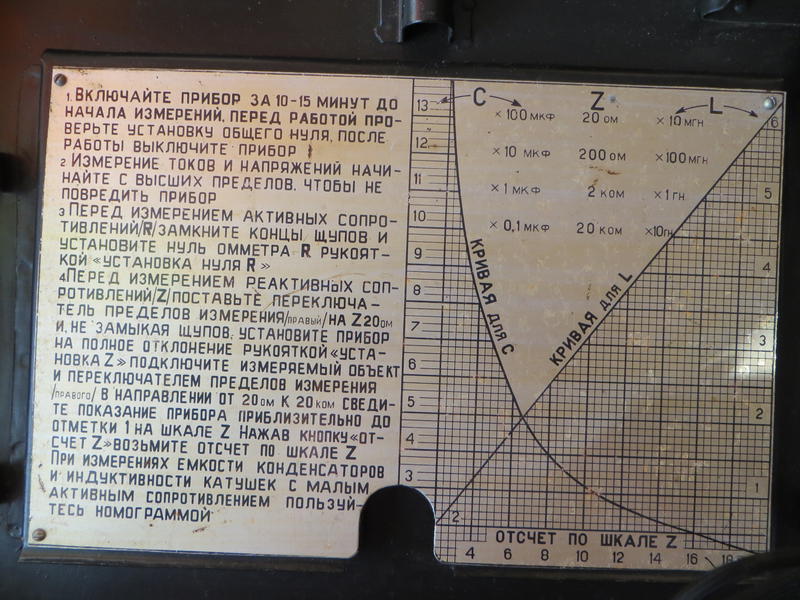 1. ВКЛЮЧАЙТЕ ПРИБОР ЗА 10-15 МИНУТ ДО
НАЧАЛА ИЗМЕРЕНИЙ, ПЕРЕД РАБОТОЙ ПРО-
ВЕРЬТЕ УСТАНОВКУ ОБЩЕГО НУЛЯ, ПОСЛЕ
РАБОТЫ ВЫКЛЮЧИТЕ ПРИБОР
2 ИЗМЕРЕНИЕ ТОКОВ И НАПРЯЖЕНИЙ НАЧИ-
НАЙТЕ С ВЫСШИХ ПРЕДЕЛОВ, ЧТОБЫ НЕ
ПОВРЕДИТЬ ПРИБОР
3 ПЕРЕД ИЗМЕРЕНИЕМ АКТИВНЫХ СОПРО-
ТИВЛЕНИЙ/R/ЗАМКНИТЕ КОНЦЫ ЩУПОВ И
УСТАНОВИТЕ НУЛЬ ОММЕТРА R РУКОЯТ-
КОЙ «УСТАНОВКА НУЛЯ R»
4 ПЕРЕД ИЗМЕРЕНИЕМ РЕАКТИВНЫХ СОП-
РОТИВЛЕНИЙ/Z/ПОСТАВЬТЕ ПЕРЕКЛЮЧА-
ТЕЛЬ ПРЕДЕЛОВ ИЗМЕРЕНИЯ/ПРАВЫЙ/НА Z20ОМ
И, НЕ ЗАМЫКАЯ ЩУПОВ, УСТАНОВИТЕ ПРИБОР
НА ПОЛНОЕ ОТКЛОНЕНИЕ РУКОЯТКОЙ «УСТА-
НОВКА Z» ПОДКЛЮЧИТЕ ИЗМЕРЯЕМЫЙ ОБЪЕКТ
И ПЕРЕКЛЮЧАТЕЛЕМ ПРЕДЕЛОВ ИЗМЕРЕНИЯ
/ПРАВОГО/ В НАПРАВЛЕНИИ ОТ 20 ОМ К 20 КОМ СВЕДИ-
ТЕ ПОКАЗАНИЕ ПРИБОРА ПРИБЛИЗИТЕЛЬНО ДО
ОТМЕТКИ 1 НА ШКАЛЕ Z НАЖАВ КНОПКУ «ОТ-
СЧЕТ Z» ВОЗЬМИТЕ ОТСЧЕТ ПО ШКАЛЕ Z
ПРИ ИЗМЕРЕНИЯХ ЕМКОСТИ КОНДЕНСАТОРОВ
И ИНДУКТИВНОСТИ КАТУШЕК С МАЛЫМ
АКТИВНЫМ СОПРОТИВЛЕНИЕМ ПОЛЬЗУЙ-
ТЕСЬ НОМОГРАММОЙ
C Z L
× 100 МКФ 20 ОМ × 10 МГН
× 10 МКФ 200 ОМ × 100 МГН
× 1 МКФ 2 КОМ × 1 ГН
× 0,1 МКФ 20 КОМ ×10ГН
13
12
11
10
9
8
7
6
5
4
3
2
КРИВАЯ ДЛЯ C
КРИВАЯ ДЛЯ L
6
5
4
3
2
1
ОТСЧЕТ ПО ШКАЛЕ Z
4 6 8 10 12 14 16 18